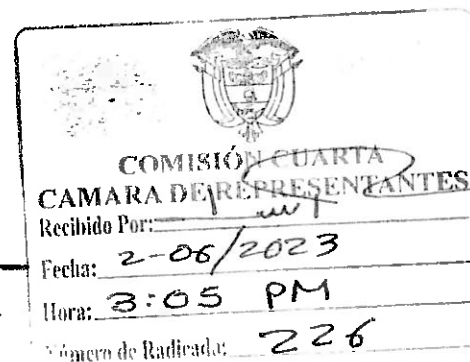 COMISIÓN CUARTA
CAMARA DE REPRESENTANTES
Recibido Por:
Fecha: 2-06/2023
Hora: 3:05 PM
Número de Radicada: 226